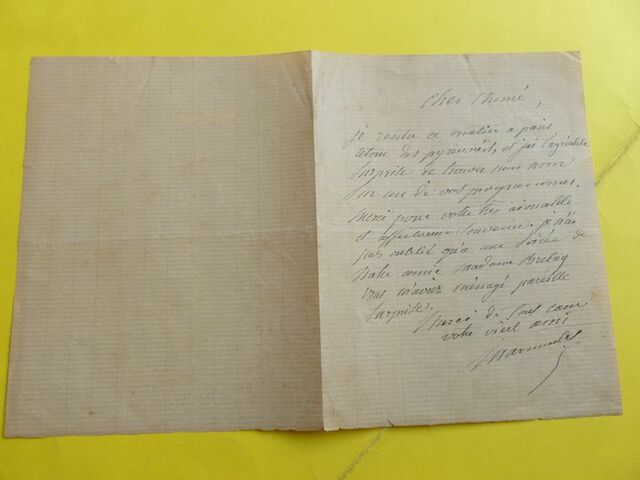 Cher Thomé,
je rentre ce matin a paris
retour des pyrennées, et j'ai l'agréable
surprise de trouver mon nom
sur un de vos programmes.
Merci pour votre très aimable
et affectueux souvenir. je n'ai
pas oublié qu'a une soirée de
votre amie Madame Trelay
vous m'aviez ménagé pareille
surprise.
Merci de tout cœur
votre vieil ami